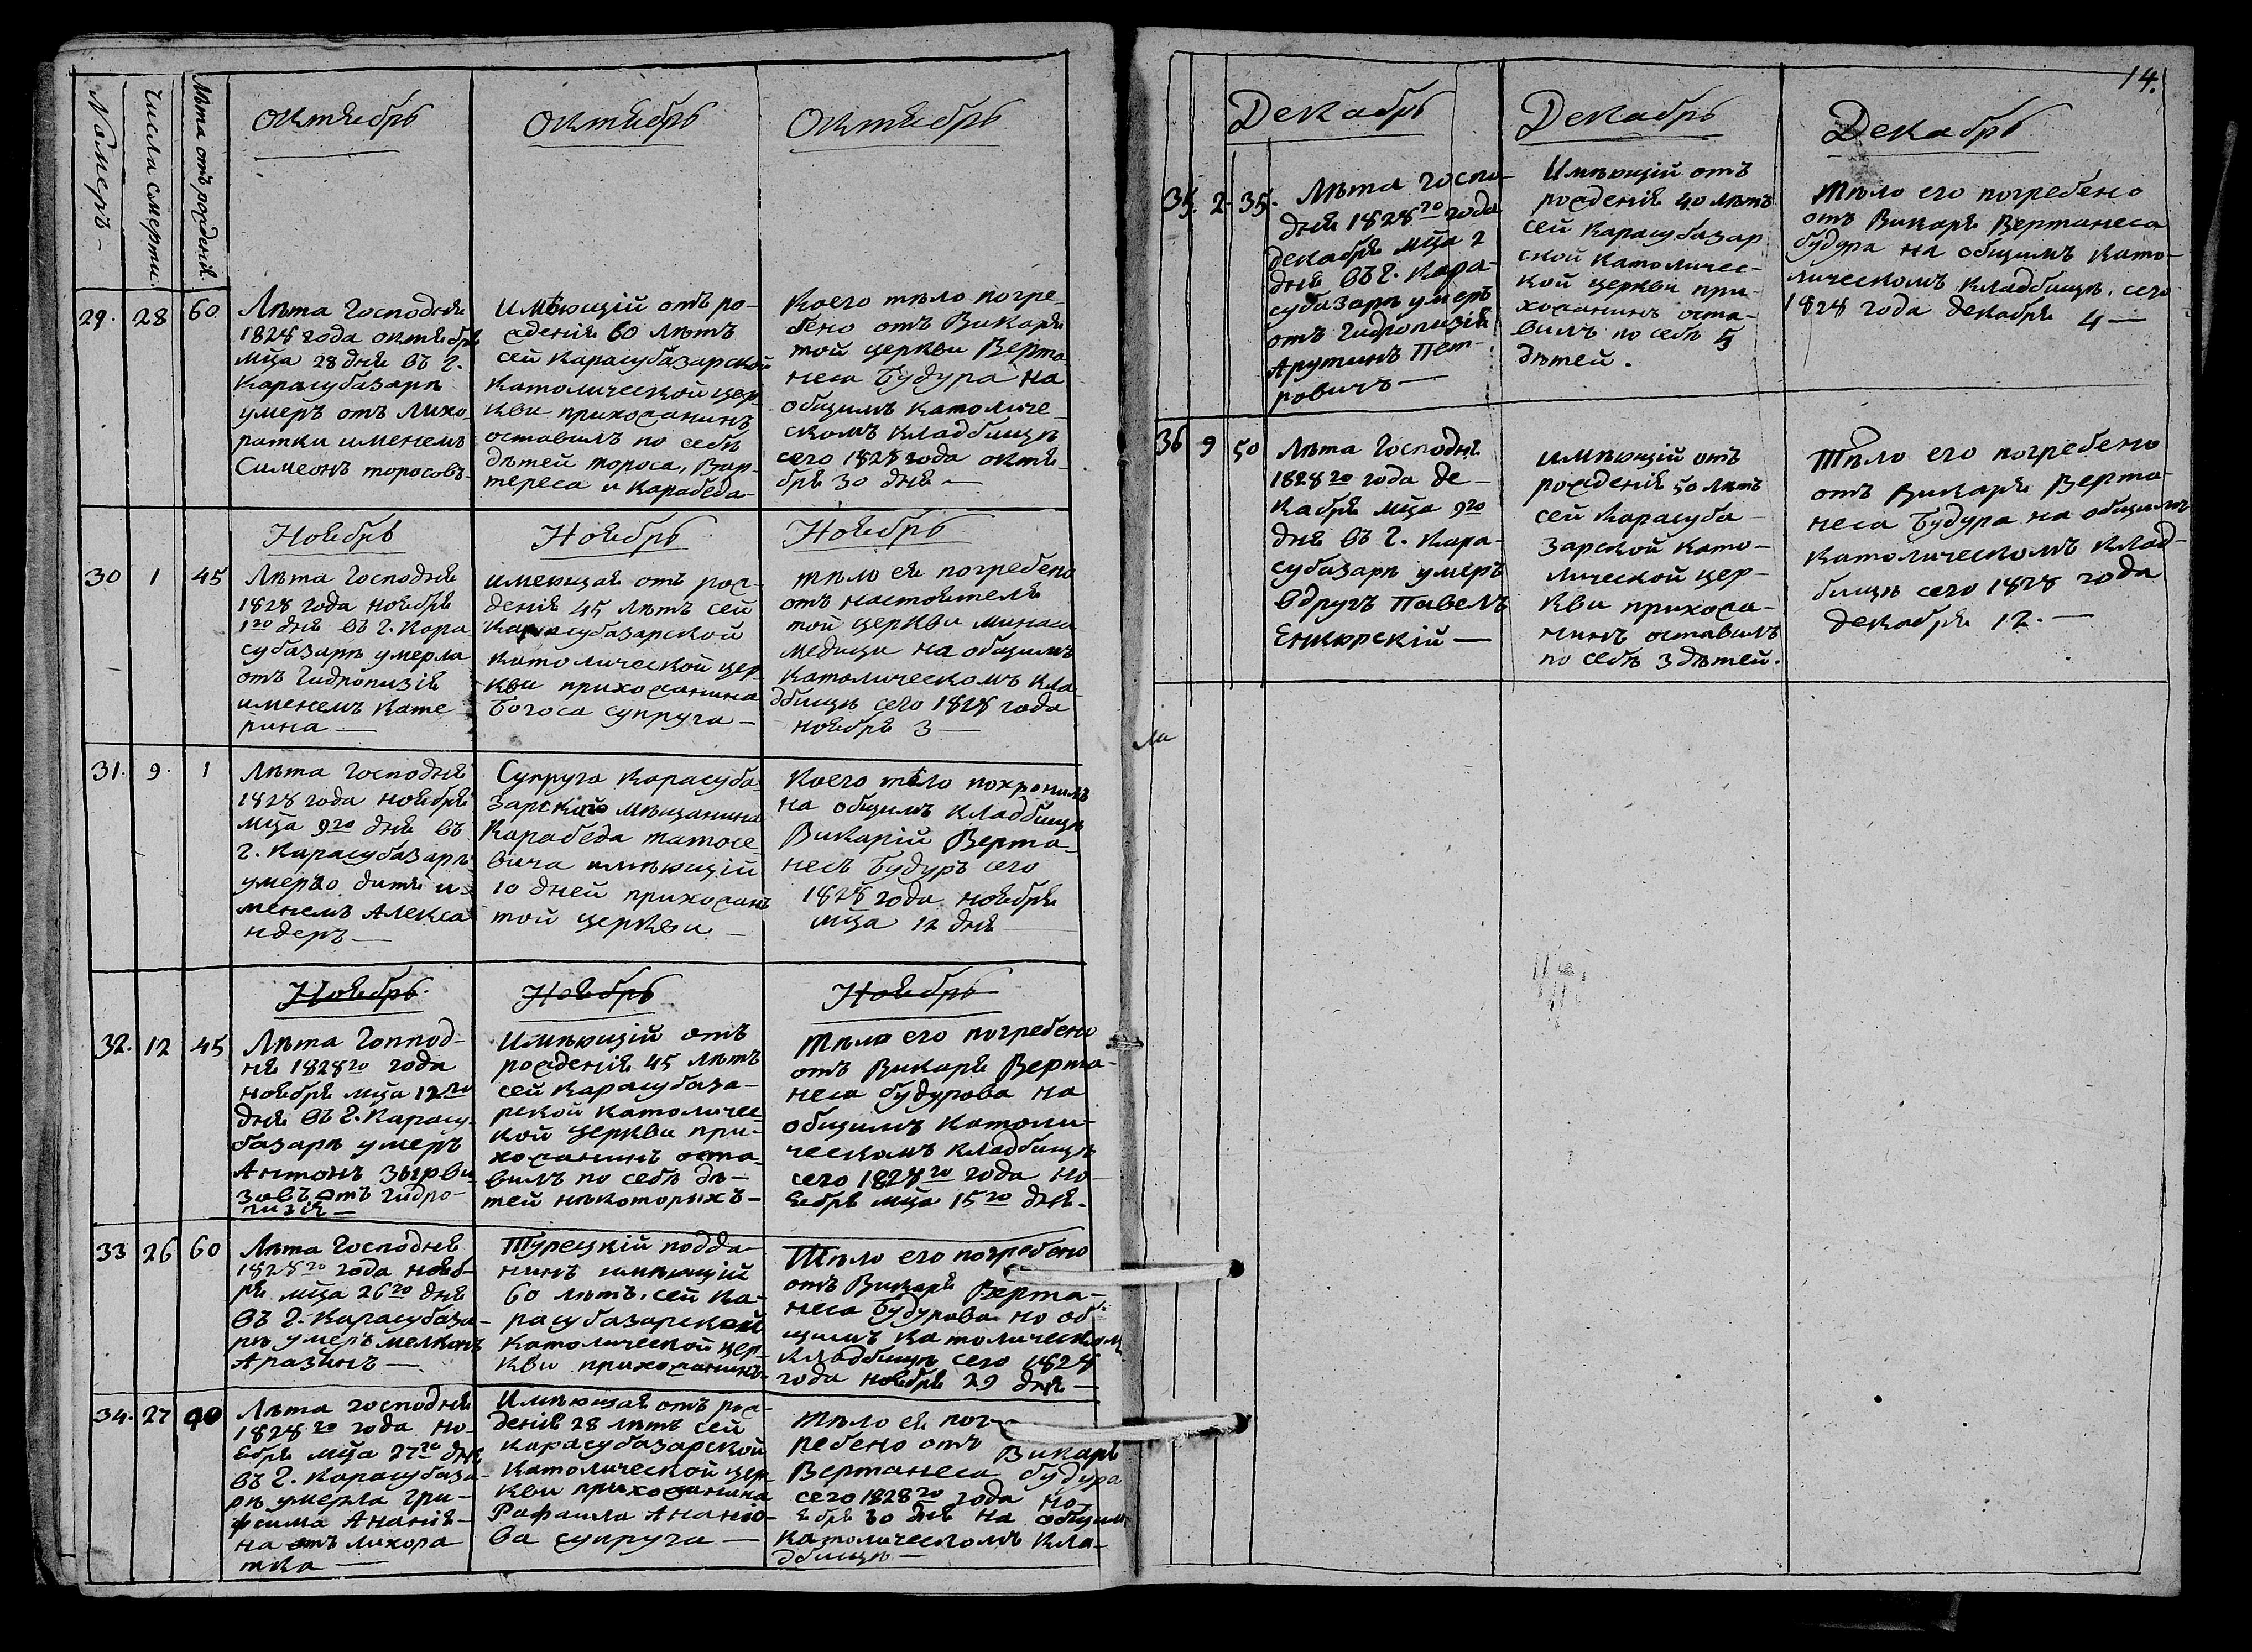 Номеръ
Числа смерти.
Лѣта отъ рожденія.
Октябрь
Октябрь
Октябрь
29.
28
60
Лѣта Господня
1828 года октября
мца 28 дня въ г.
Карасубазарѣ
умеръ отъ лихо
ратки именемъ
Симеонъ торосовъ-
Имѣющій отъ ро-
жденія 60 лѣтъ
сей Карасубазарской
Католической цер-
кви прихожанинъ
оставилъ по себѣ
дѣтей тороса, Вар-
тереса и Карабеда-
Коего тѣло погре-
бено отъ Викаря
той церкви Верта
неса Будура на
общимъ католиче-
скомъ кладбищѣ
сего 1828 года октя-
бря 30 дня —
Ноябрь
Ноябрь
Ноябрь
30
1
45
Лѣта Господня
1828 года ноября
1го дня въ г. Кара
субазарѣ умерла
отъ Гидропизія
именемъ Кате
рина —
имеющая отъ рож-
денія 45 лѣтъ сей
Карасубазарской
католической цер-
кви прихожанина
Богоса супруга —
тѣло ея погребено
отъ настоятеля
той церкви минаса
медици на общимъ
Католическомъ кла-
дбищѣ сего 1828 года
ноября 3 —
31.
9.
1
Лѣта Господня
1828 года ноября
мца 9го дня въ
г. Карасубазарѣ
умерло дитя и-
менемъ Алекса
ндеръ —
Супруга Карасуба
зарскаго мѣщанина
Карабеда татосе
вича имѣющій
10 дней прихожанъ
той церкви —
Коего тѣло похронилъ
на общимъ кладбищѣ
Викарій Верта-
несъ Будуръ сего
1828 года ноября
мца 12 дня
Ноябрь
Ноябрь
Ноябрь
32.
12
45
Лѣта Гоппод-
ня 1828го года
ноября мца 12го
дня въ г. Карасу-
базарѣ умеръ
Антонъ
зовъ отъ гидро-
пизія —
Имѣющій отъ
рожденія 45 лѣтъ
сей Карасубаза-
рской католичес
кой церкви при-
хожанинъ оста-
вилъ по себѣ дѣ-
тей нѣкоторыхъ-
Тѣло его погребено
отъ Викаря Верта-
неса будурова на
общимъ католи-
ческомъ кладбищѣ
сего 1828го года но-
ебря мца 15го дня.
33
26
60
Лѣта Господня
1828го года нояб-
ря мца 26го дня
въ г. Карасубаза-
рѣ умеръ мелконъ
Аразинъ —
Турецкій подда-
нинъ имѣющій
60 лѣтъ. сей Ка-
расубазарской
католической цер-
кви прихожанинъ
Тѣло его погребено
отъ Викаря Верта-
неса Будурова но об-
щимъ католическом
кладбищѣ сего 1828
года ноября 29 дня —
34.
27
40
Лѣта господня
1828го года но-
ебря мца 27го дня
въ г. Карасубаза-
рѣ умерла гри-
фсима Ананія-
на отъ лихора
тка —
Имѣющая отъ рож-
денія 28 лѣтъ сей
карасубазарской
Католической цер-
кви прихожанина
Рафаила Ананіо-
ва супруга —
тѣло ея пог-
ребено отъ Викаря
Вертанеса будура
сего 1828го года но-
ебря 30 дня на общим
католическомъ кла-
дбищѣ —
14.
Декабрь
Декабрь
Декабрь
35.
2.
35.
Лѣта госпо-
дня 1828го года
декабря мца 2
дня въ г. Кара-
субазарѣ умеръ
отъ гидропизія
Арутинъ Пет-
ровичъ —
Имѣющій отъ
рожденія 40 лѣтъ
сей Карасубазар
ской католичес-
кой церкви при-
хожанинъ оста-
вилъ по себѣ 5
дѣтей.
Тѣло его погребено
отъ Викаря Вертанеса
будура на общимъ като-
лическомъ кладбищѣ. сего
1828 года декабря 4 —
36
9
50
Лѣта Господня
1828го года де-
кабря мца 9го
дня въ г. Кара-
субазарѣ умеръ
вдругъ Павелъ
Енкярскій —
имѣющій отъ
рожденія 50 лѣтъ
сей Карасуба-
зарской като-
лической цер-
кви прихожа-
нинъ оставилъ
по себѣ 3 дѣтей.
Тѣло его погребено
отъ Викаря Верта-
неса Будура на общимъ
католическомъ клад-
бищѣ сего 1828 года
декабря 12. —